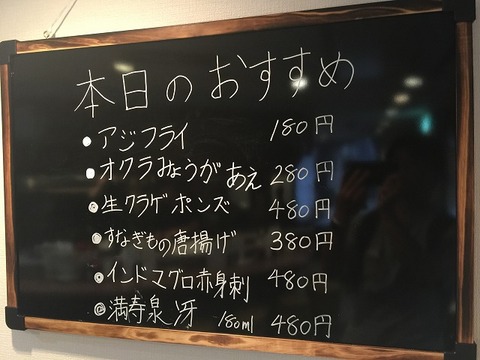 本日のおすすめ
●アジフライ 180円
●オクラみょうがあえ 280円
◎生クラゲポンズ 480円
◎すなぎもの唐揚げ 380円
◎インドマグロ赤身刺 480円
◎満寿泉 冴 180ml 480円